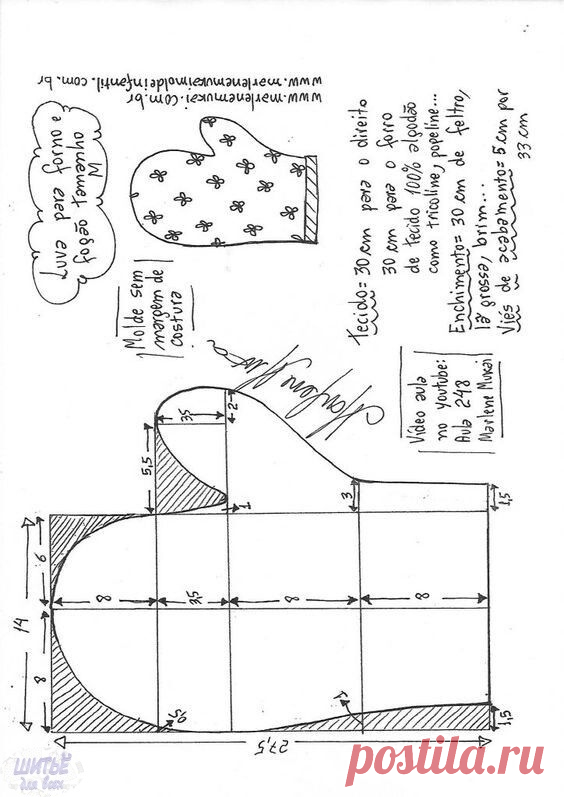 www.marlenemukai.com.br
www.marlenemukaimoldeinfantil.com.br
Luva para forno e
fogão tamanho
M
Molde sem
margem de
costura
Tecido = 30 cm para o direito
30 cm para o forro
de tecido 100% algodão
como tricoline, popeline...
Enchimento = 30 cm de feltro,
lã grossa, brim...
Viés de acabamento = 5 cm por
33 cm
Vídeo aula
no youtube:
Aula 248
Marlene Mukai
Marlene Mukai
35
2
5,5
1
3
1,5
6
14
8
8
3,5
8
8
0,5
1
1,5
27,5
ШИТЬЁ
для всех
postila.ru